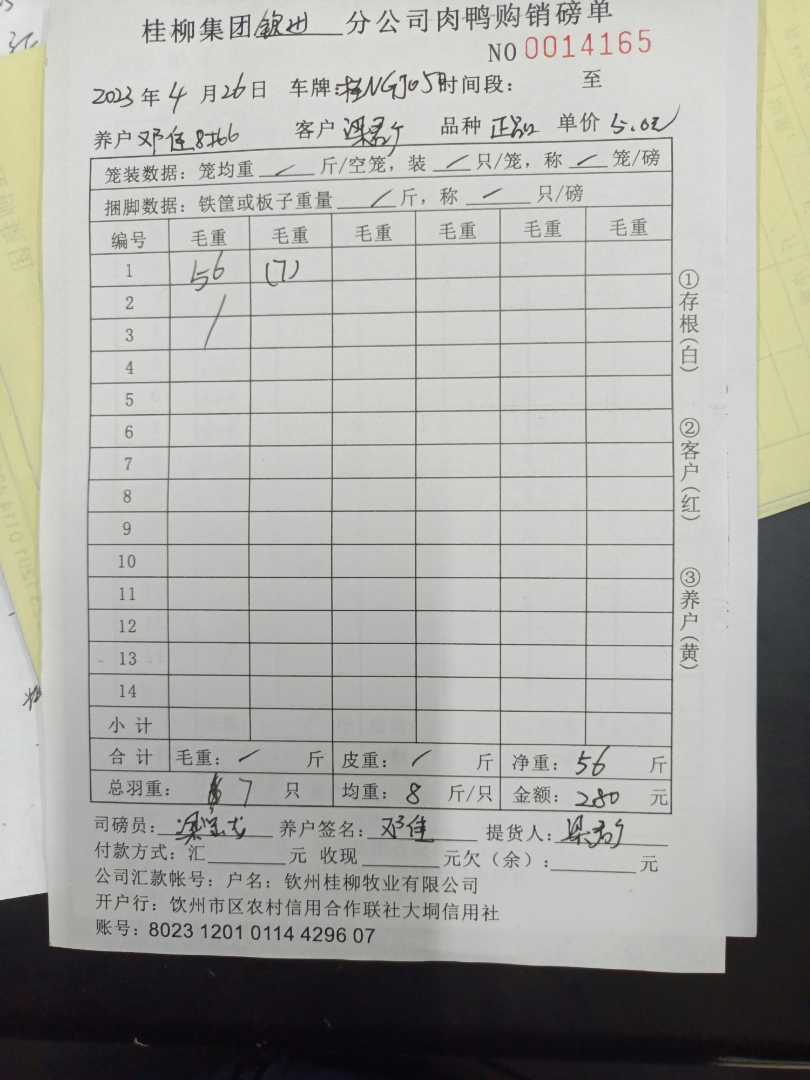 桂柳集团钦州分公司肉鸭购销磅单
NO 0014165
2023年4月26日 车牌: 时间段: 至
养户邓佳 客户 品种 正品 单价 5.0元
笼装数据: 笼均重 / 斤/空笼, 装 / 只/笼, 称 / 笼/磅
捆脚数据: 铁筐或板子重量 / 斤, 称 / 只/磅
编号 毛重 毛重 毛重 毛重 毛重 毛重
1 56 (7)
2 /
3
4
5
6
7
8
9
10
11
12
13
14
小计
合计 毛重: / 斤 皮重: / 斤 净重: 56 斤
总羽重: 7 只 均重: 8 斤/只 金额: 280 元
司磅员: 养户签名: 邓佳 提货人:
付款方式: 汇 元 收现 元欠(余): 元
公司汇款帐号: 户名: 钦州桂柳牧业有限公司
开户行: 饮州市区农村信用合作联社大垌信用社
账号: 8023 1201 0114 4296 07
①存根(白)
②客户(红)
③养户(黄)